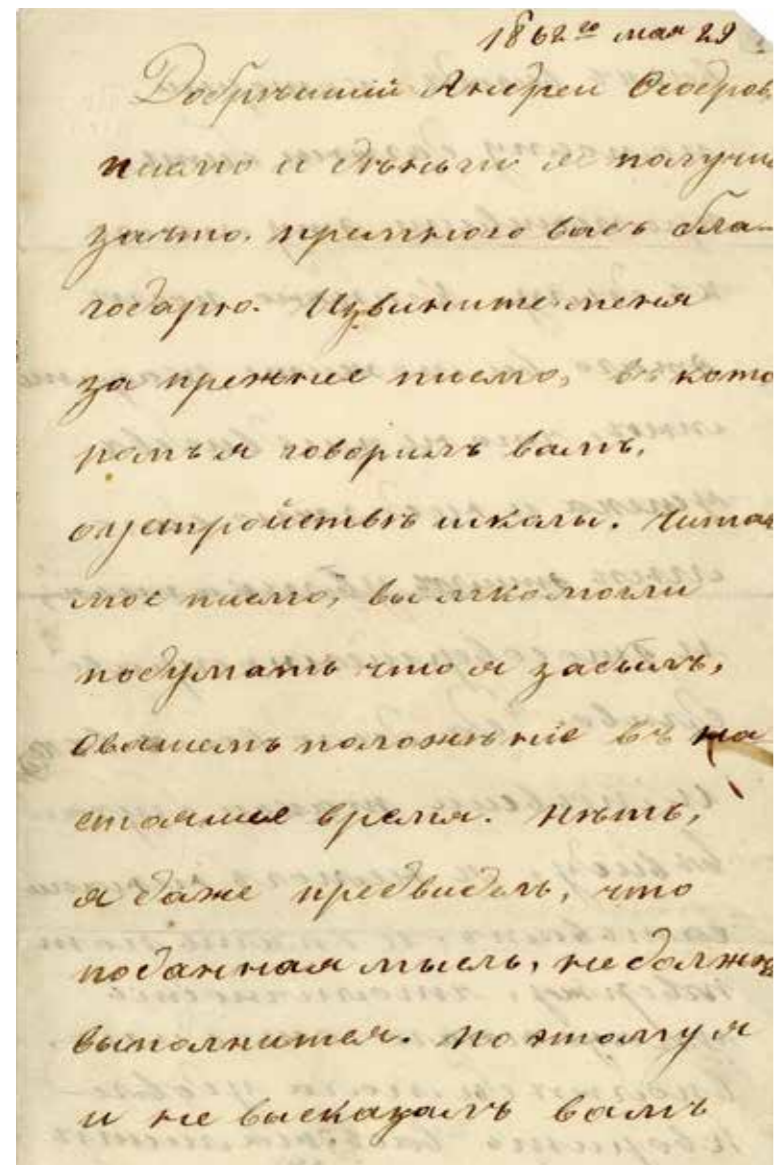 1862го мая 29
Добрѣиший Андреи Феодров
писмо и дѣньги я получи
зачто. премного васъ бла-
годарю. Извините меня
за прежнее писмо, въ кото
ромъ я говорилъ вамъ,
обустройствѣ школы. Читая
мое писмо, вы лѣгко могли
подумать что я забылъ,
овашемъ положѣние въ на
стоящее время. Нѣтъ,
я даже предвидѣлъ, что
поданная мысль, не должна
выполнится. Поэтому я
и не высказалъ вамъ